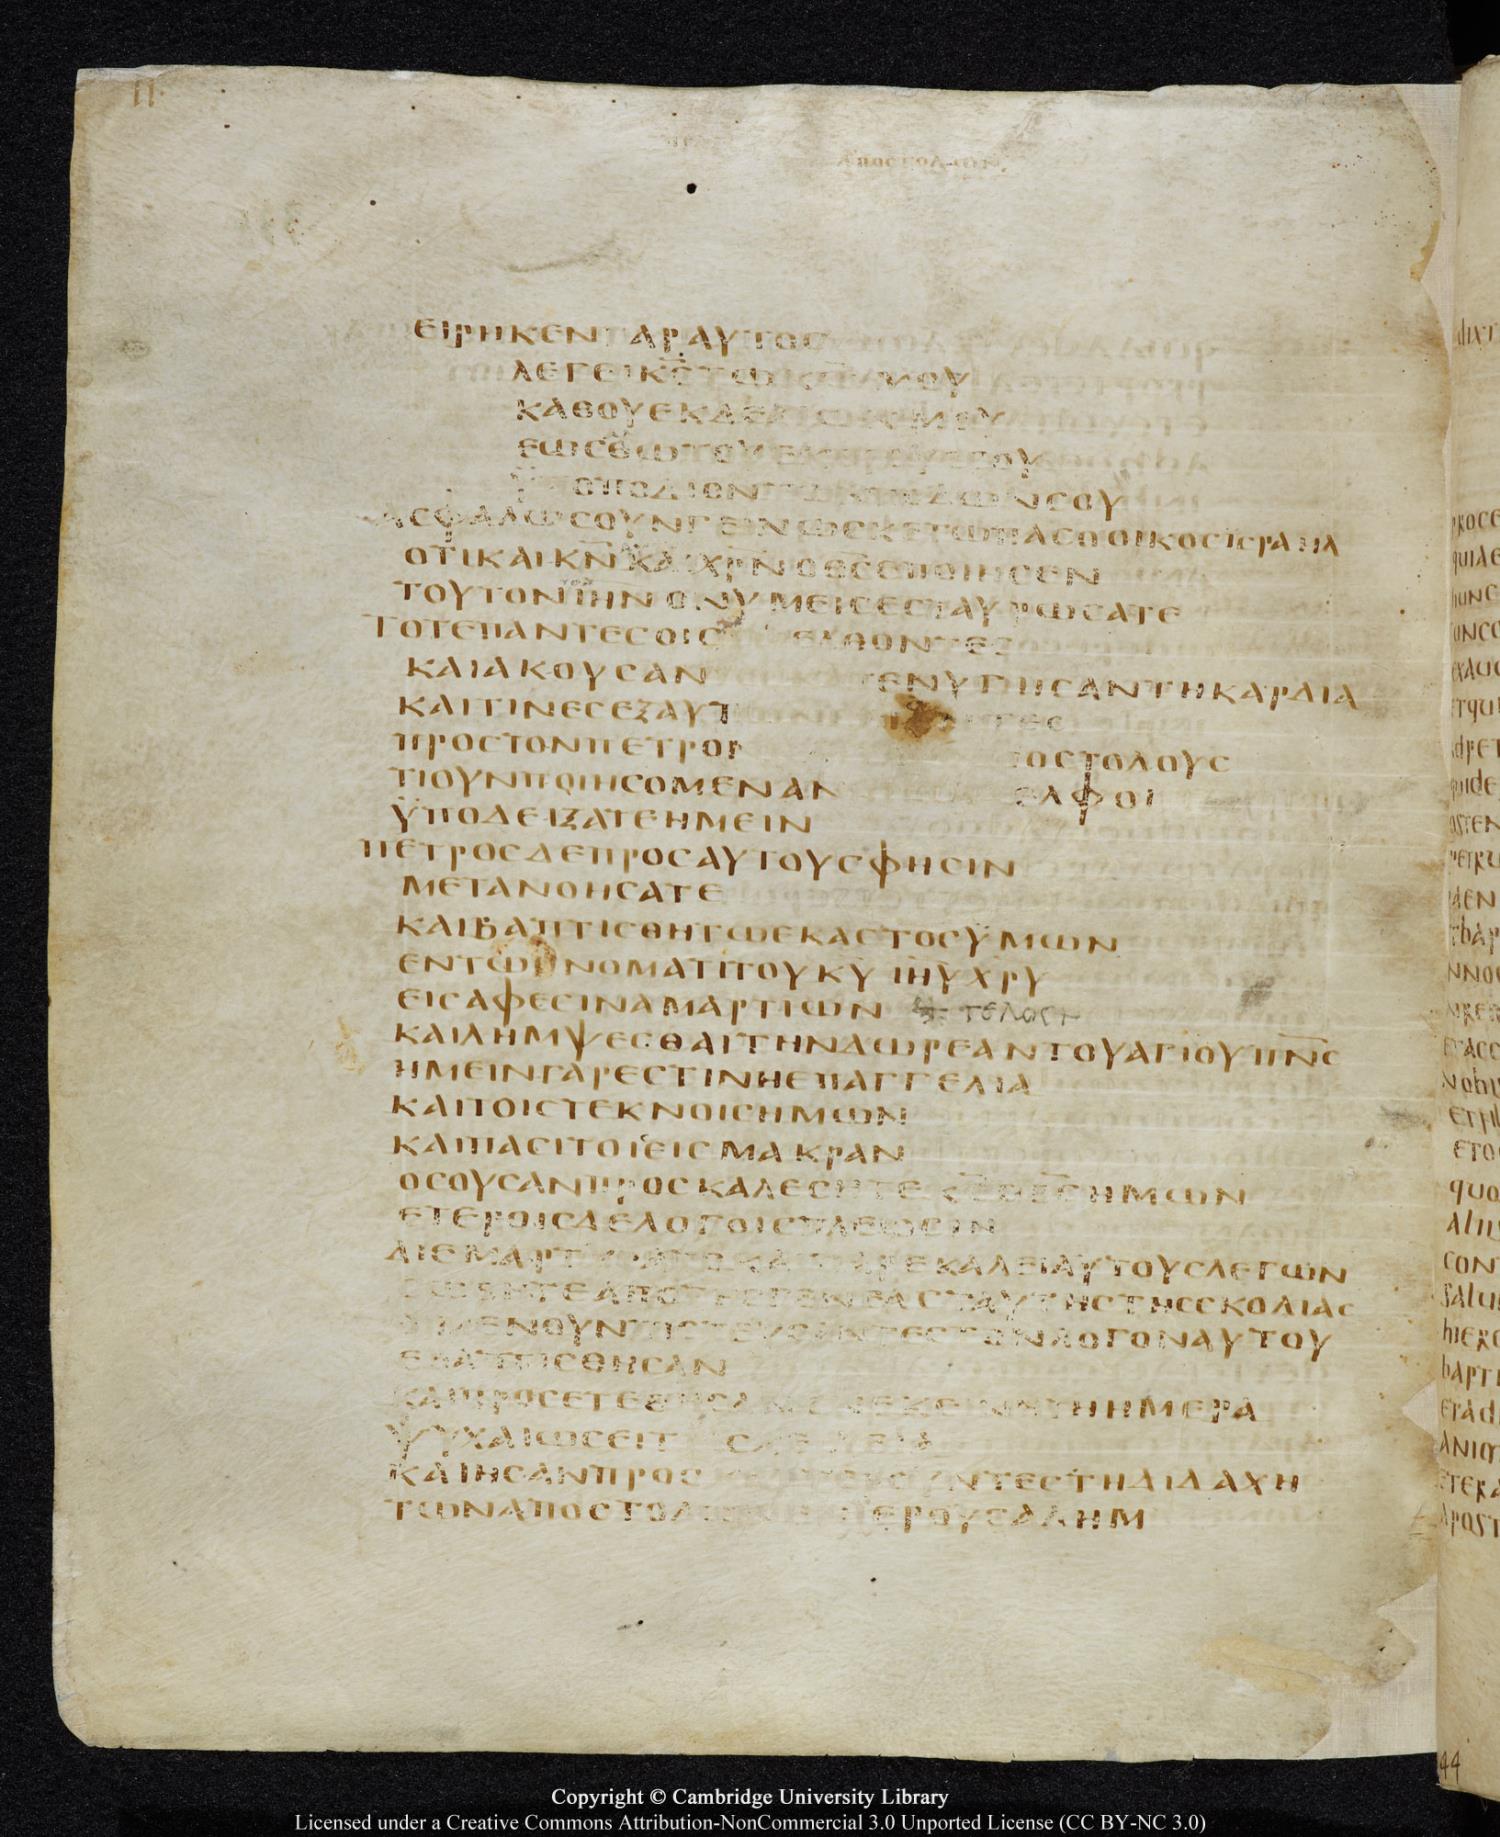 ΑΠΟСΤΟΛΩΝ
ΕΙΡΗΚΕΝΓΑΡΑΥΤΟС
ΛΕΓΕΙΚ̅С̅ΤΩΚ̅Ω̅ΜΟΥ
ΚΑΘΟΥΕΚΔΕΞΙΩΝΜΟΥ
ΕΩСΘΩΤΟΥСΕΧΘΡΟΥССΟΥ
ΥΠΟΠΟΔΙΟΝΤΩΝΠΟΔΩΝСΟΥ
ΑСΦΑΛΩСΟΥΝΓΕΙΝΩСΚΕΤΩΠΑСΟΟΙΚΟСΙСΡΑΗΛ
ΟΤΙΚΑΙΚ̅Ν̅ΚΑΙΧΡ̅Ν̅ΟΘ̅С̅ΕΠΟΙΗСΕΝ
ΤΟΥΤΟΝΙΗΝΟΝΥΜΕΙСΕСΤΑΥΡΩСΑΤΕ
ΤΟΤΕΠΑΝΤΕСΟΙС ΕΛΘΟΝΤΕС
ΚΑΙΑΚΟΥСΑΝ ΤΕΝΥΓΗСΑΝΤΗΚΑΡΔΙΑ
ΚΑΙΤΙΝΕСΕΞΑΥΤ
ΠΡΟСΤΟΝΠΕΤΡΟΝ ΟСΤΟΛΟΥС
ΤΙΟΥΝΠΟΙΗСΟΜΕΝΑΝ ΕΛΦΟΙ
ΥΠΟΔΕΙΞΑΤΕΗΜΕΙΝ
ΠΕΤΡΟСΔΕΠΡΟСΑΥΤΟΥСΦΗСΙΝ
ΜΕΤΑΝΟΗСΑΤΕ
ΚΑΙΒΑΠΤΙСΘΗΤΩΕΚΑСΤΟСΥΜΩΝ
ΕΝΤΩΟΝΟΜΑΤΙΤΟΥΚ̅Υ̅ΙΗΥ̅ΧΡΥ̅
ΕΙСΑΦΕСΙΝΑΜΑΡΤΙΩΝ ΤΕΛΟС
ΚΑΙΛΗΜΨΕСΘΑΙΤΗΝΔΩΡΕΑΝΤΟΥΑΓΙΟΥΠΝ̅С̅
ΗΜΕΙΝΓΑΡΕСΤΙΝΗΕΠΑΓΓΕΛΙΑ
ΚΑΙΤΟΙСΤΕΚΝΟΙСΗΜΩΝ
ΚΑΙΠΑСΙΤΟΙСΕΙСΜΑΚΡΑΝ
ΟСΟΥСΑΝΠΡΟСΚΑΛΕСΗΤΕΚ̅С̅ΟΘ̅С̅ΗΜΩΝ
ΕΤΕΡΟΙСΔΕΛΟΓΟΙСΠΛΕΙΟСΙΝ
ΔΙΕΜΑΡΤΥΡΑΤΟΚΑΙΠΑΡΕΚΑΛΕΙΑΥΤΟΥСΛΕΓΩΝ
СΩΘΗΤΕΑΠΟΤΗСΓΕΝΕΑСΤΑΥΤΗСΤΗССΚΟΛΙΑС
ΟΙΜΕΝΟΥΝΠΙСΤΕΥСΑΝΤΕСΤΟΝΛΟΓΟΝΑΥΤΟΥ
ΕΒΑΠΤΙСΘΗСΑΝ
ΚΑΙΠΡΟСΕΤΕΘΗСΑΝΕΝΕΚΕΙΝΗΤΗΗΜΕΡΑ
ΨΥΧΑΙΩСΕΙΤΡΙСΧΕΙΛΕΙΑΙ
ΚΑΙΗСΑΝΠΡΟСΚΑΡΤΕΡΟΥΝΤΕСΤΗΔΙΔΑΧΗ
ΤΩΝΑΠΟСΤΟΛΩΝΕΝΙΕΡΟΥСΑΛΗΜ
Copyright © Cambridge University Library
Licensed under a Creative Commons Attribution-NonCommercial 3.0 Unported License (CC BY-NC 3.0)